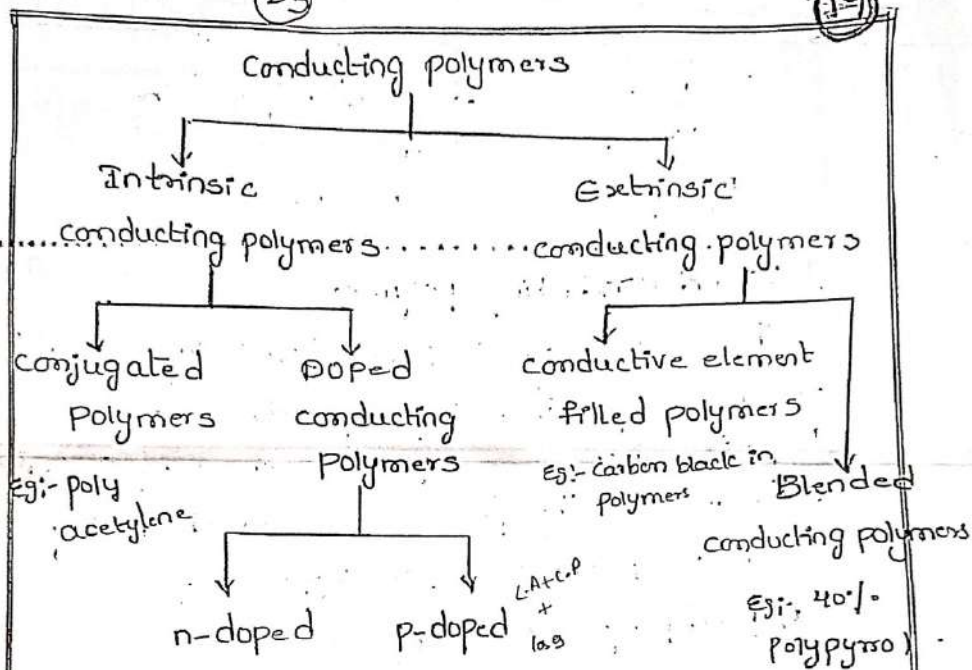 Conducting polymers
Intrinsic
conducting polymers
Extrinsic
conducting polymers
conjugated
polymers
Eg:- poly
acetylene
Doped
conducting
polymers
n-doped
p-doped
L.A+C.P
+
conductive element
filled polymers
Eg:- carbon black in
polymers
Blended
conducting polymers
Eg:- 40%
polypyrro